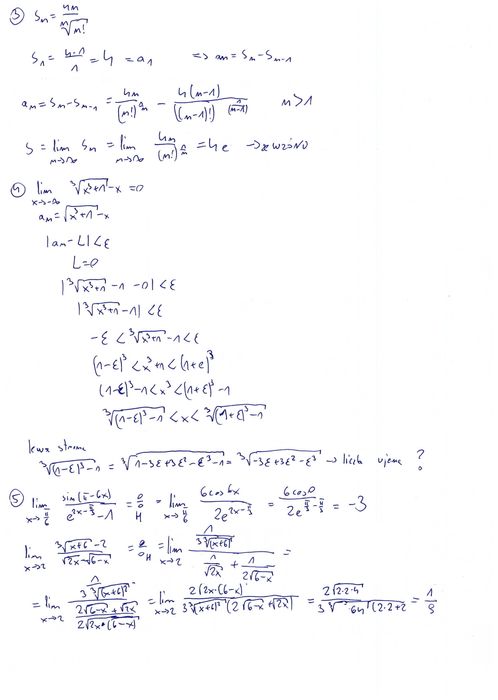 ③ Sn = 4n / ⁿ√n!
S1 = 4·1/1 = 4 = a1 => an = Sn - Sn-1
an = Sn - Sn-1 = 4n/(n!)^(1/n) - 4(n-1)/((n-1)!)^(1/(n-1)) n>1
S = lim n→∞ Sn = lim n→∞ 4n/(n!)^(1/n) = 4e → ze wzoru
④ lim x→-∞ ³√(x³+1) - x = 0
an = √(x³+1) - x
|an - L| < ε
L=0
|³√(x³+1) - 1 - 0| < ε
|³√(x³+1) - 1| < ε
-ε < ³√(x³+1) - 1 < ε
(1-ε)³ < x³+1 < (1+ε)³
(1-ε)³-1 < x³ < (1+ε)³-1
³√((1-ε)³-1) < x < ³√((1+ε)³-1)
lewa strona
³√((1-ε)³-1) = ³√(1-3ε+3ε²-ε³-1) = ³√(-3ε+3ε²-ε³) → liczba ujemna ?
⑤ lim x→π/6 sin(π-6x) / (e^(2x-π/3) - 1) = 0/0 H = lim x→π/6 6cos6x / 2e^(2x-π/3) = 6cos0 / 2e^(π/3-π/3) = -3
lim x→2 (³√(x+6) - 2) / (√2x - √(6-x)) = 0/0 H = lim x→2 (1 / 3³√(x+6)²) / (1/√2x + 1/2√(6-x)) =
= lim x→2 (1 / 3³√(x+6)²) / ((2√(6-x) + √2x) / 2√(2x·(6-x))) = lim x→2 2√(2x·(6-x)) / 3³√(x+6)²(2√(6-x) + √2x) = 2√(2·2·4) / 3³√64(2·2+2 = 1/9